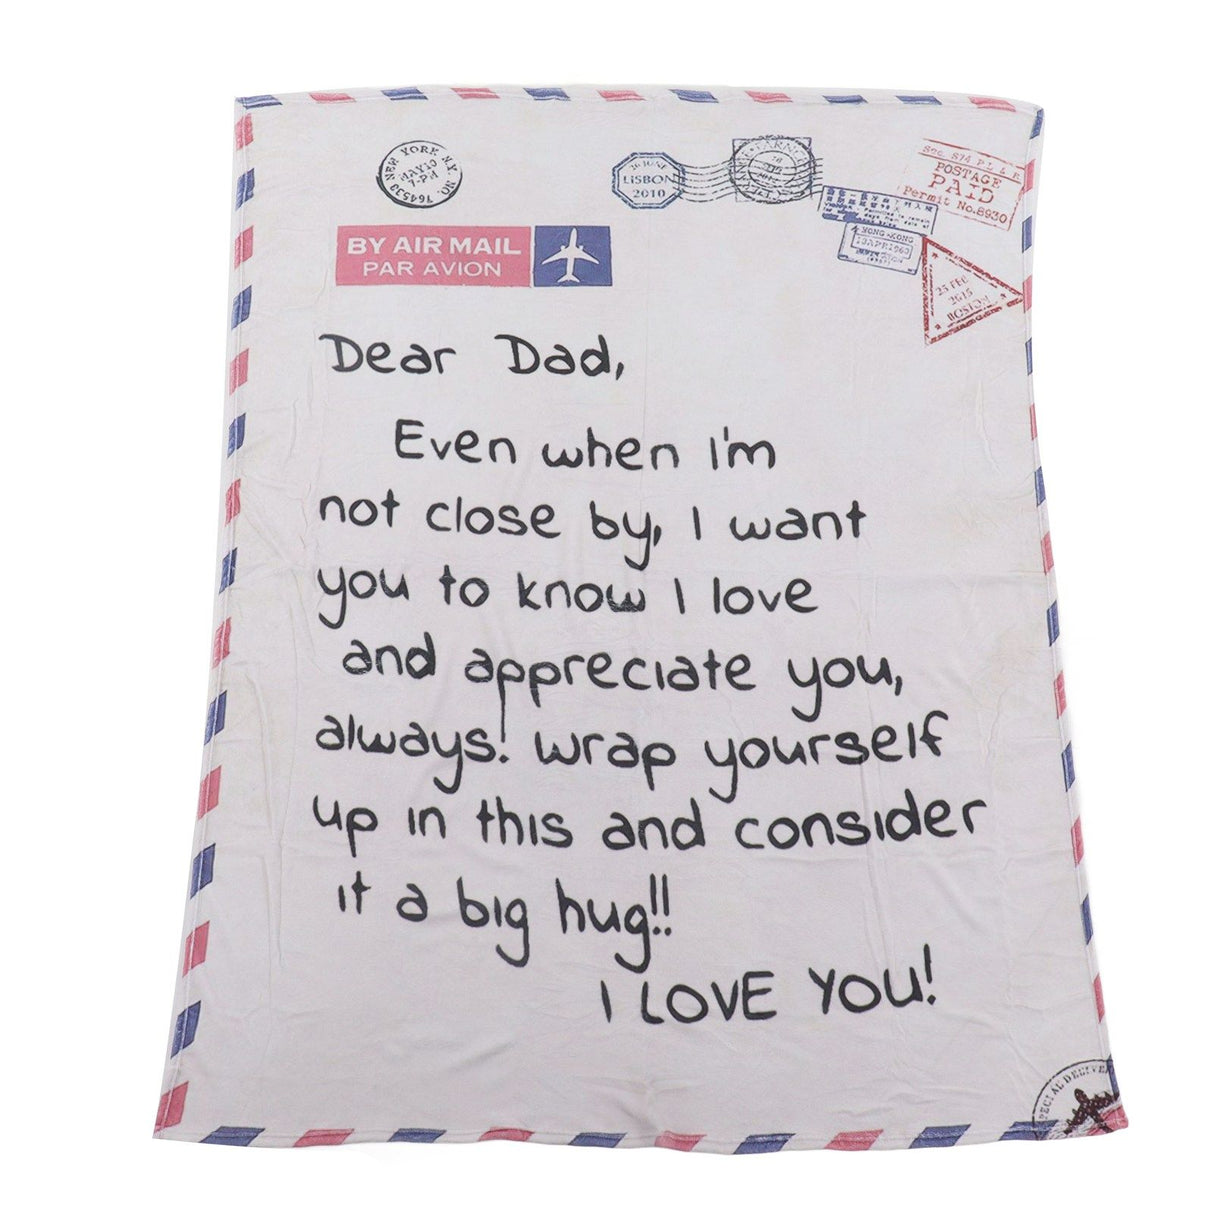 NEW YORK N.Y.
MAY 10
7-PM
NO. 764530
LISBON
2010
POSTAGE
PAID
Permit No.8930
HONG-KONG
BY AIR MAIL
PAR AVION
25 FEB
2015
BOSTON
Dear Dad,
Even when I'm
not close by, I want
you to know I love
and appreciate you,
always! wrap yourself
up in this and consider
it a big hug!!
I LOVE YOU!